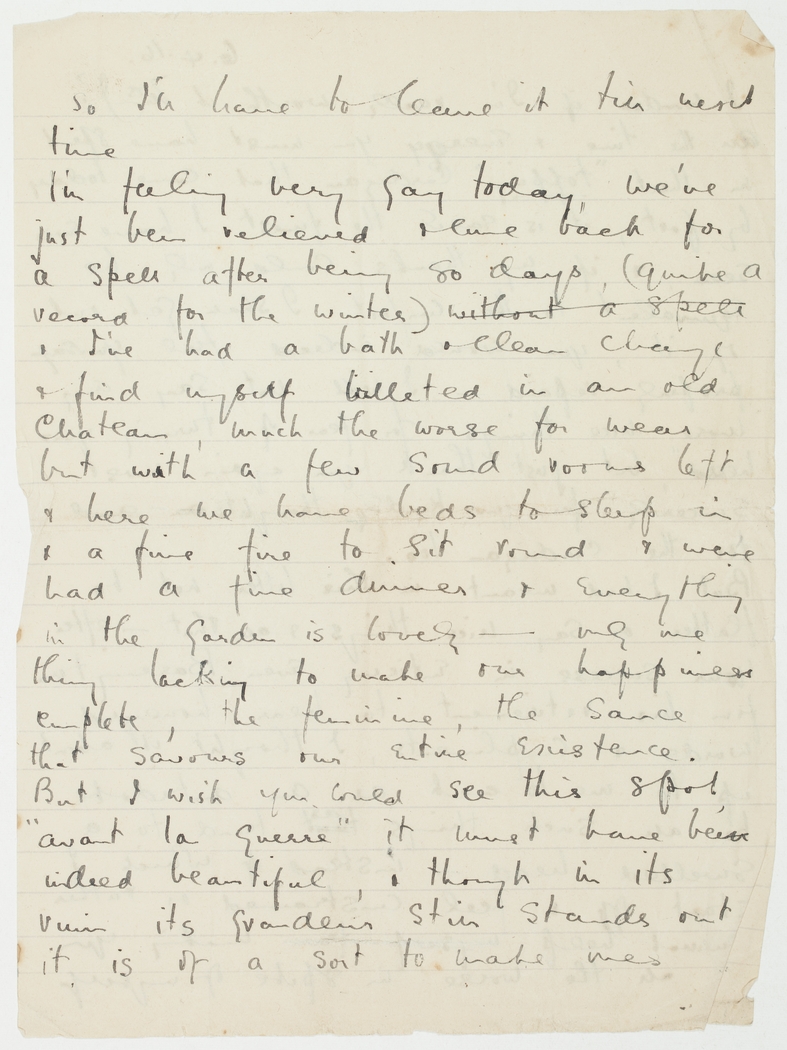 so I'll have to leave it till next
time
I'm feeling very gay today, we've
just been relieved & come back for
a spell after being 80 days, (quite a
record for the winter) without a spell
& I've had a bath & clean change
& find myself billeted in an old
Chateau, much the worse for wear
but with a few sound rooms left
& here we have beds to sleep in
& a fine fire to sit round & we've
had a fine dinner & everything
in the garden is lovely — only one
thing lacking to make our happiness
complete, the feminine, the sauce
that savours our entire existence.
But I wish you could see this spot
"avant la guerre" it must have been
indeed beautiful, & though in its
ruin its grandeur still stands out
it is of a sort to make ones